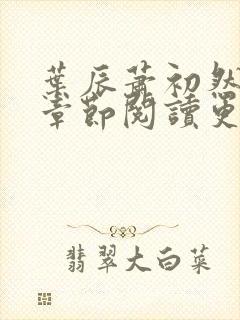 葉辰蕭初然
章節閱讀更
翡翠大白菜